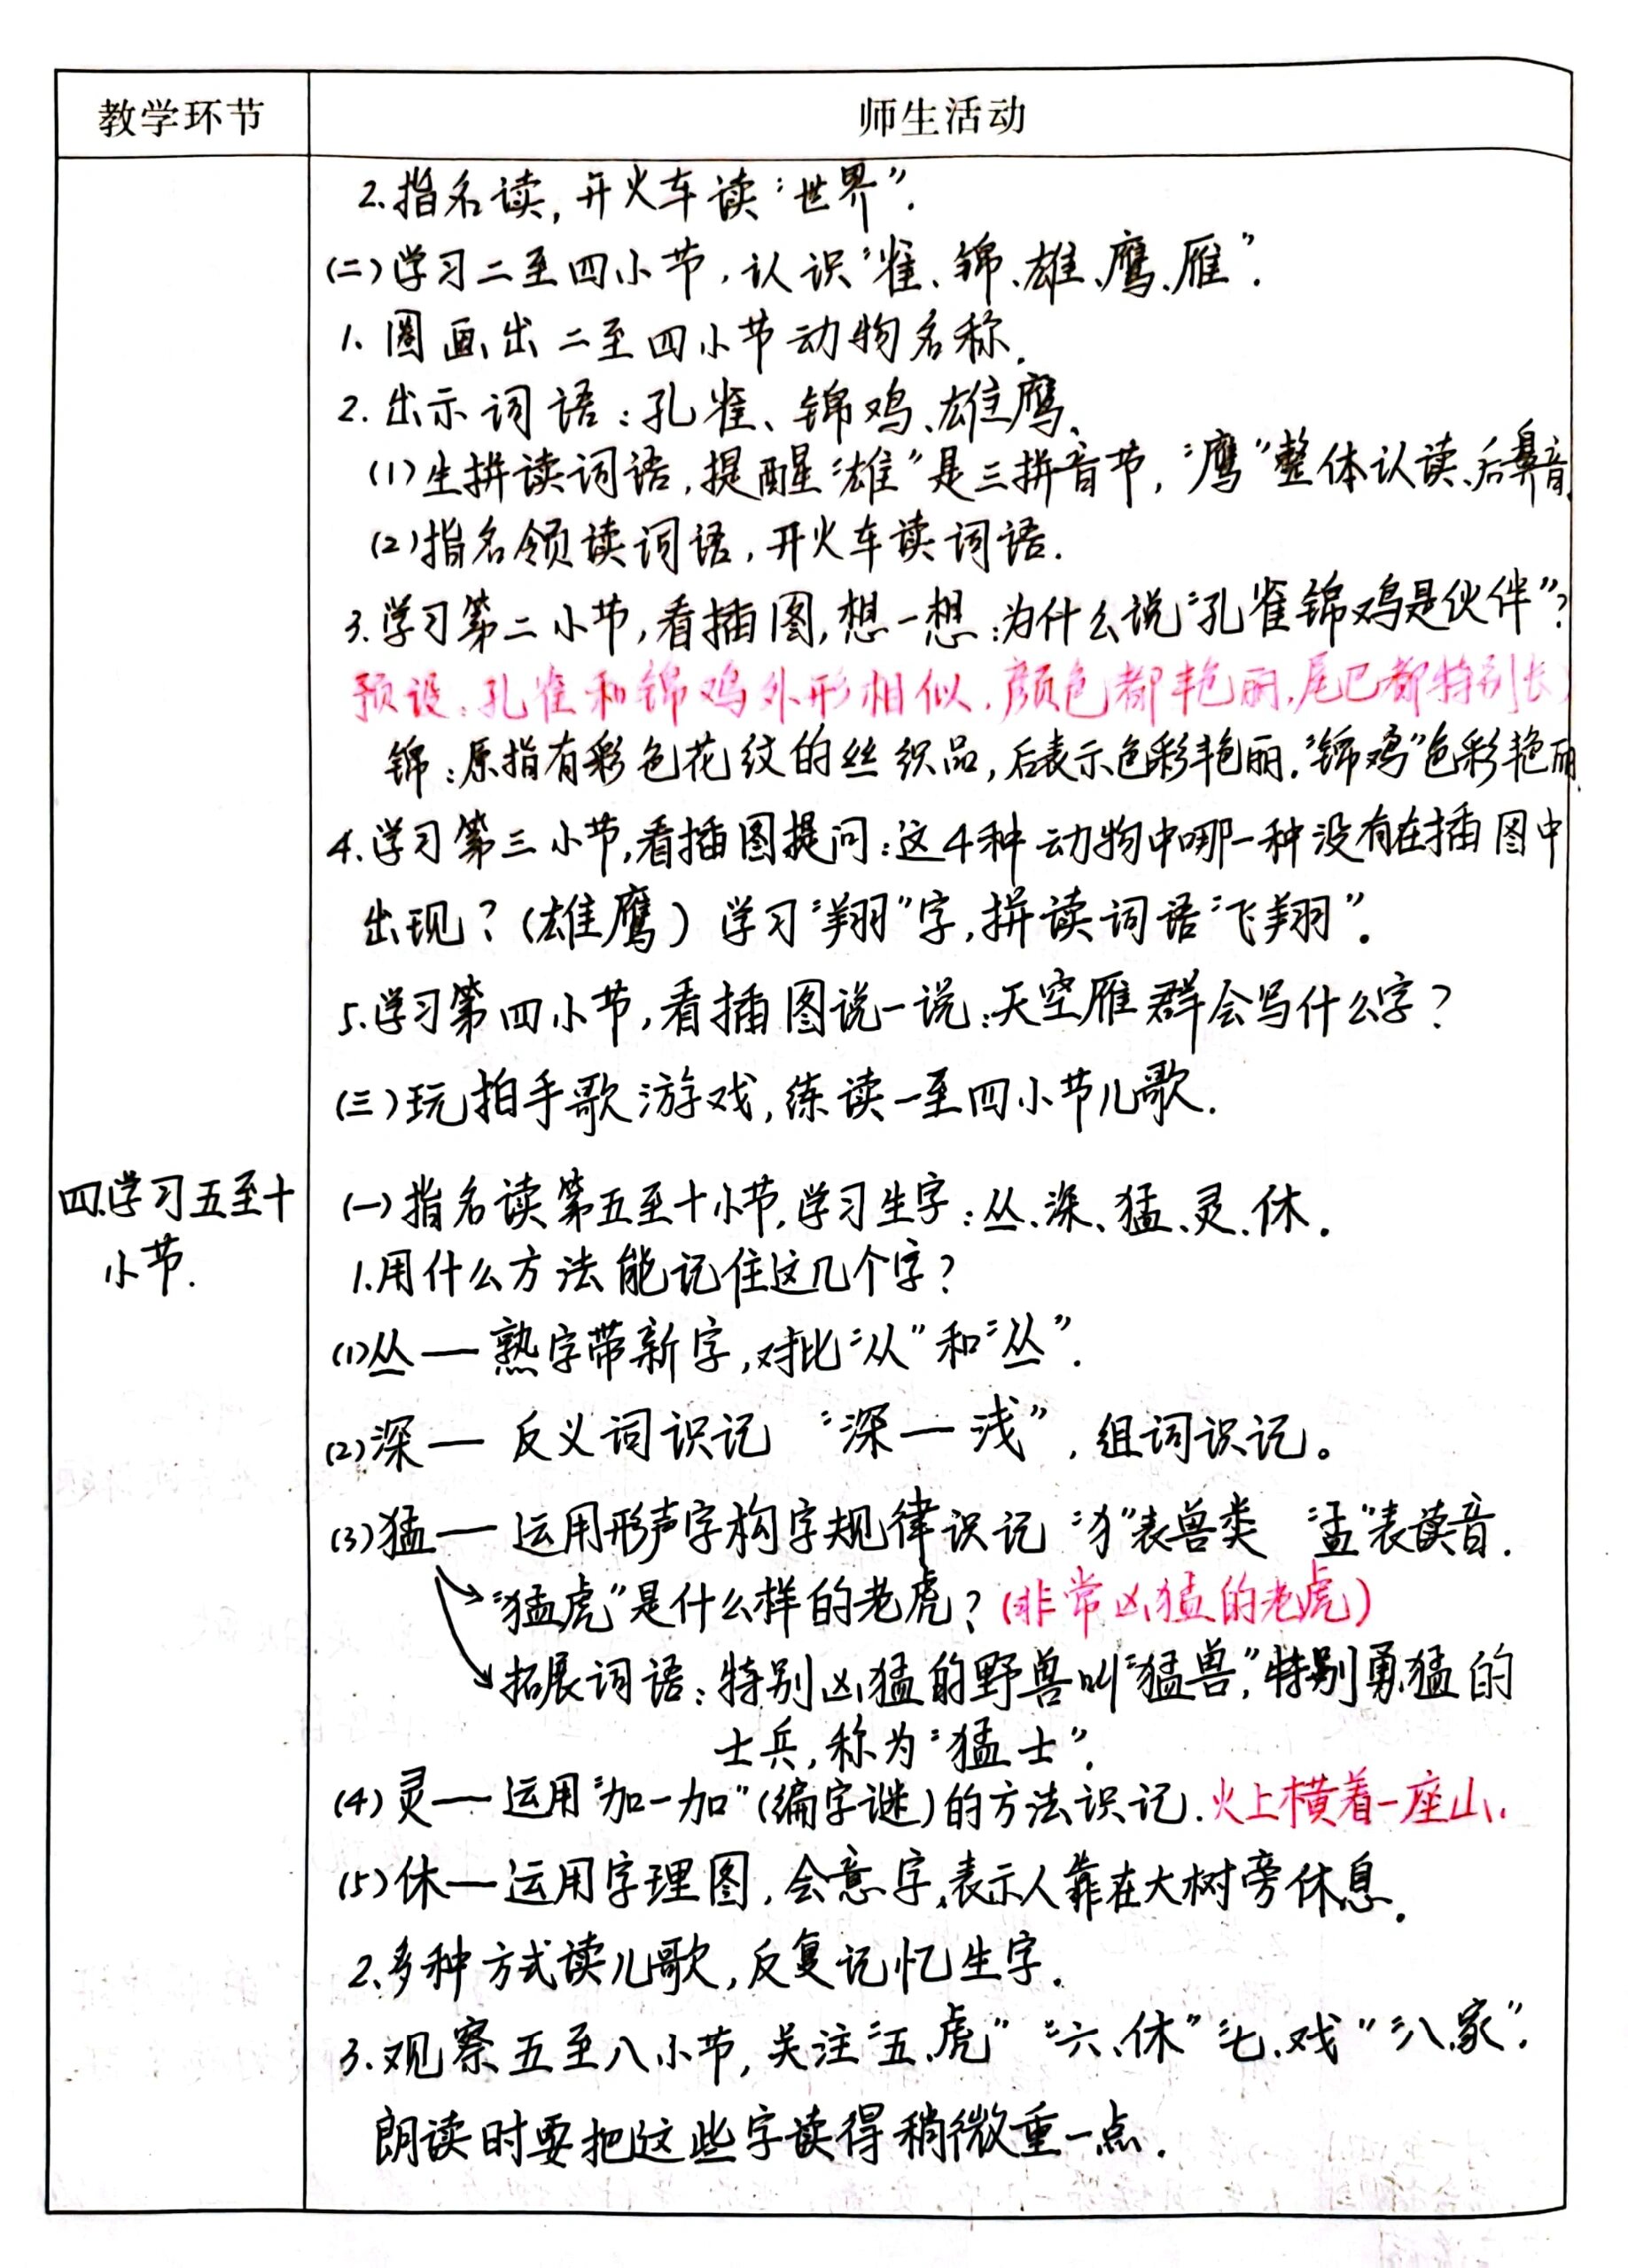 教学环节
师生活动
2.指名读,开火车读“世界”.
(二)学习二至四小节,认识“雀、锦、雄、鹰、雁”.
1.圈画出二至四小节动物名称.
2.出示词语:孔雀、锦鸡、雄鹰、
(1)生拼读词语,提醒“雄”是三拼音节,“鹰”整体认读、后鼻音.
(2)指名领读词语,开火车读词语.
3.学习第二小节,看插图,想一想:为什么说“孔雀锦鸡是伙伴”?
预设:孔雀和锦鸡外形相似.颜色都艳丽,尾巴都特别长)
锦:原指有彩色花纹的丝织品,后表示色彩艳丽.“锦鸡”色彩艳丽.
4.学习第三小节,看插图提问:这4种动物中哪一种没有在插图中
出现?(雄鹰)学习“翔”字,拼读词语“飞翔”.
5.学习第四小节,看插图说一说:天空雁群会写什么字?
(三)玩拍手歌游戏,练读一至四小节儿歌.
四.学习五至十
小节.
(一)指名读第五至十小节,学习生字:丛、深、猛、灵、休.
1.用什么方法能记住这几个字?
(1)丛——熟字带新字,对比“从”和“丛”.
(2)深——反义词识记 “深—浅”,组词识记。
(3)猛——运用形声字构字规律识记 “犭”表兽类 “孟”表读音.
“猛虎”是什么样的老虎?(非常凶猛的老虎)
拓展词语:特别凶猛的野兽叫“猛兽”,特别勇猛的
士兵,称为“猛士”.
(4)灵——运用“加一加”(编字谜)的方法识记.火上横着一座山.
(5)休——运用字理图,会意字,表示人靠在大树旁休息.
2.多种方式读儿歌,反复记忆生字.
3.观察五至八小节,关注“五、虎”“六、休”“七、戏”“八、家”.
朗读时要把这些字读得稍微重一点.